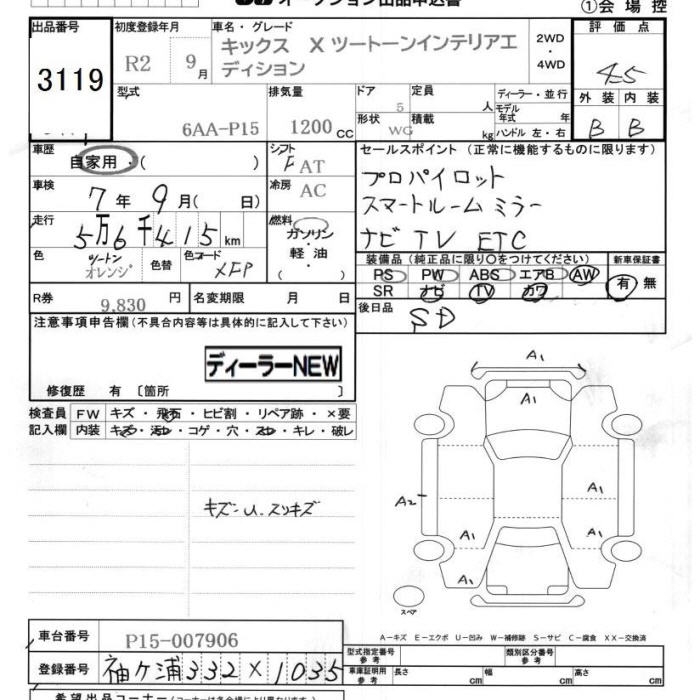 オークション出品申込書
①会場控
出品番号
3119
初度登録年月
R2 9月
車名・グレード
キックス X ツートーンインテリアエ
ディション
2WD
・
4WD
評価点
4.5
外装 内装
B B
型式
6AA-P15
排気量
1200 cc
ドア
5
定員
人
形状
WG
積載
kg
ディーラー・並行
モデル
年式 年
ハンドル 左・右
車歴
自家用・( )
シフト
F AT
車検
7年 9月( 日)
冷房
AC
走行
5万6千415km
燃料
ガソリン
・
軽油
・
( )
色
ツートン
オレンジ
色替
色コード
XFP
R券
9,830 円
名変期限 月 日
セールスポイント (正常に機能するものに限ります)
プロパイロット
スマートルームミラー
ナビ TV ETC
装備品 (純正品に限り〇をつけてください)
PS PW ABS エアB AW
SR ナビ TV カワ
新車保証書
有・無
後日品
SD
注意事項申告欄 (不具合内容等は具体的に記入して下さい)
ディーラーNEW
修復歴 有 〔箇所 〕
検査員
記入欄
FW キズ・飛石・ヒビ割・リペア跡・×要
内装 キズ・汚れ・コゲ・穴・スレ・キレ・破レ
キズ・U.スリキズ
A1
A1
A2
A1
A1
A1
A1
スペア
A-キズ E-エクボ U-凹み W-補修跡 S-サビ C-腐食 XX-交換済
車台番号
P15-007906
登録番号
袖ヶ浦332×1035
型式指定番号
参考
類別区分番号
参考
車庫証明用
参考
長さ cm 幅 cm 高さ cm
希望出品コーナー